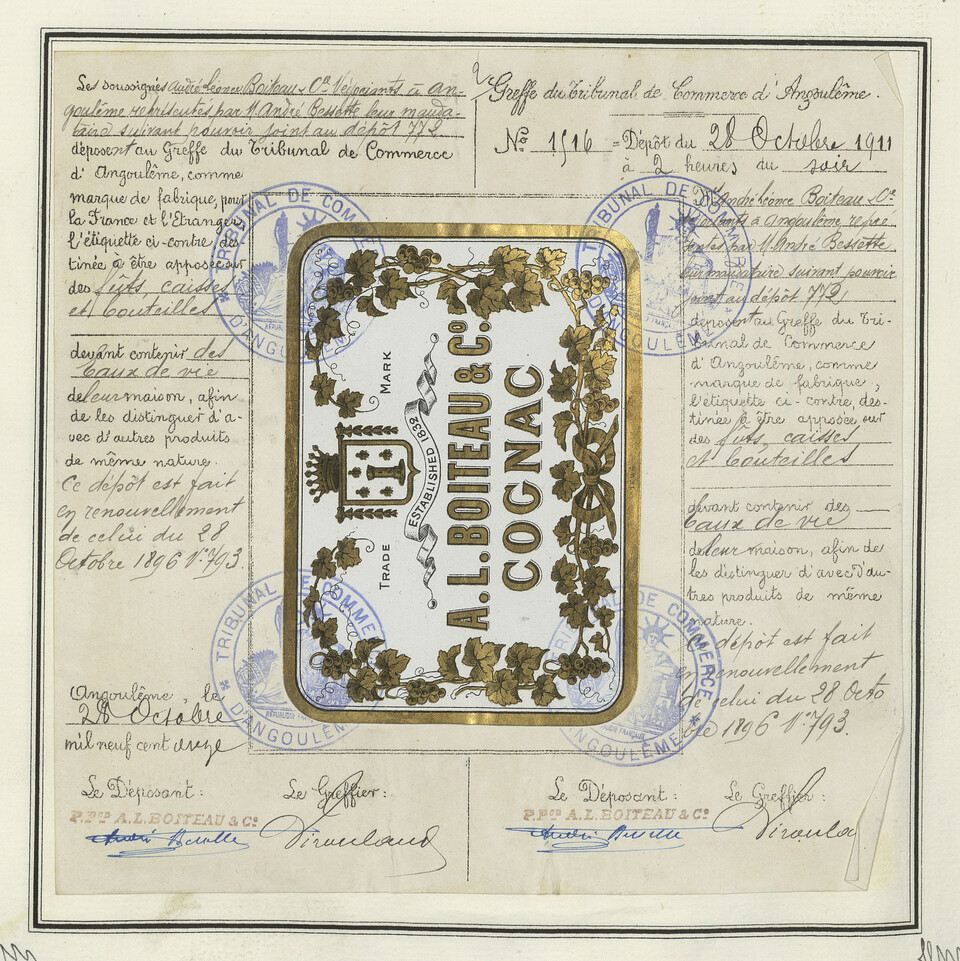 Les soussignés André Léonce Boiteau & Cie Négociants à An-
goulême représentés par M. André Bessette leur manda-
taire suivant pouvoir joint au dépôt 772
déposent au Greffe du Tribunal de Commerce
d'Angoulême, comme
marque de fabrique, pour
la France et l'Etranger
l'étiquette ci-contre des-
tinée à être apposée sur
des fûts, caisses
et bouteilles
devant contenir des
Eaux de vie
de leur maison, afin
de les distinguer d'a-
vec d'autres produits
de même nature.
Ce dépôt est fait
en renouvellement
de celui du 28
Octobre 1896 N° 793.
Angoulême, le
28 Octobre
mil neuf cent onze
Le Déposant :
Le Greffier :
P.PON A.L.BOITEAU & Co
Greffe du Tribunal de Commerce d'Angoulême.
No 1516 = Dépôt du 28 Octobre 1911
à 2 heures du soir
André Léonce Boiteau & Cie
à Angoulême repré
par M. André Bessette
leur mandataire suivant pouvoir
joint au dépôt 772
déposent au Greffe du Tri-
bunal de Commerce
d'Angoulême, comme
marque de fabrique,
l'étiquette ci-contre, des-
tinée à être apposée sur
des fûts, caisses
et bouteilles
devant contenir des
Eaux de vie
de leur maison, afin de
les distinguer d'avec d'au-
tres produits de même
nature.
Ce dépôt est fait
en renouvellement
de celui du 28 Octo
bre 1896 N° 793.
Le Déposant :
Le Greffier :
P.PON A.L.BOITEAU & Co
TRADE MARK
ESTABLISHED 1832
A.L. BOITEAU & Co.
COGNAC
TRIBUNAL DE COMMERCE
D'ANGOULÊME
TRIBUNAL DE COMMERCE
D'ANGOULÊME
TRIBUNAL DE COMMERCE
D'ANGOULÊME
RÉPUBLIQUE FRANÇAISE
TRIBUNAL DE COMMERCE
D'ANGOULÊME